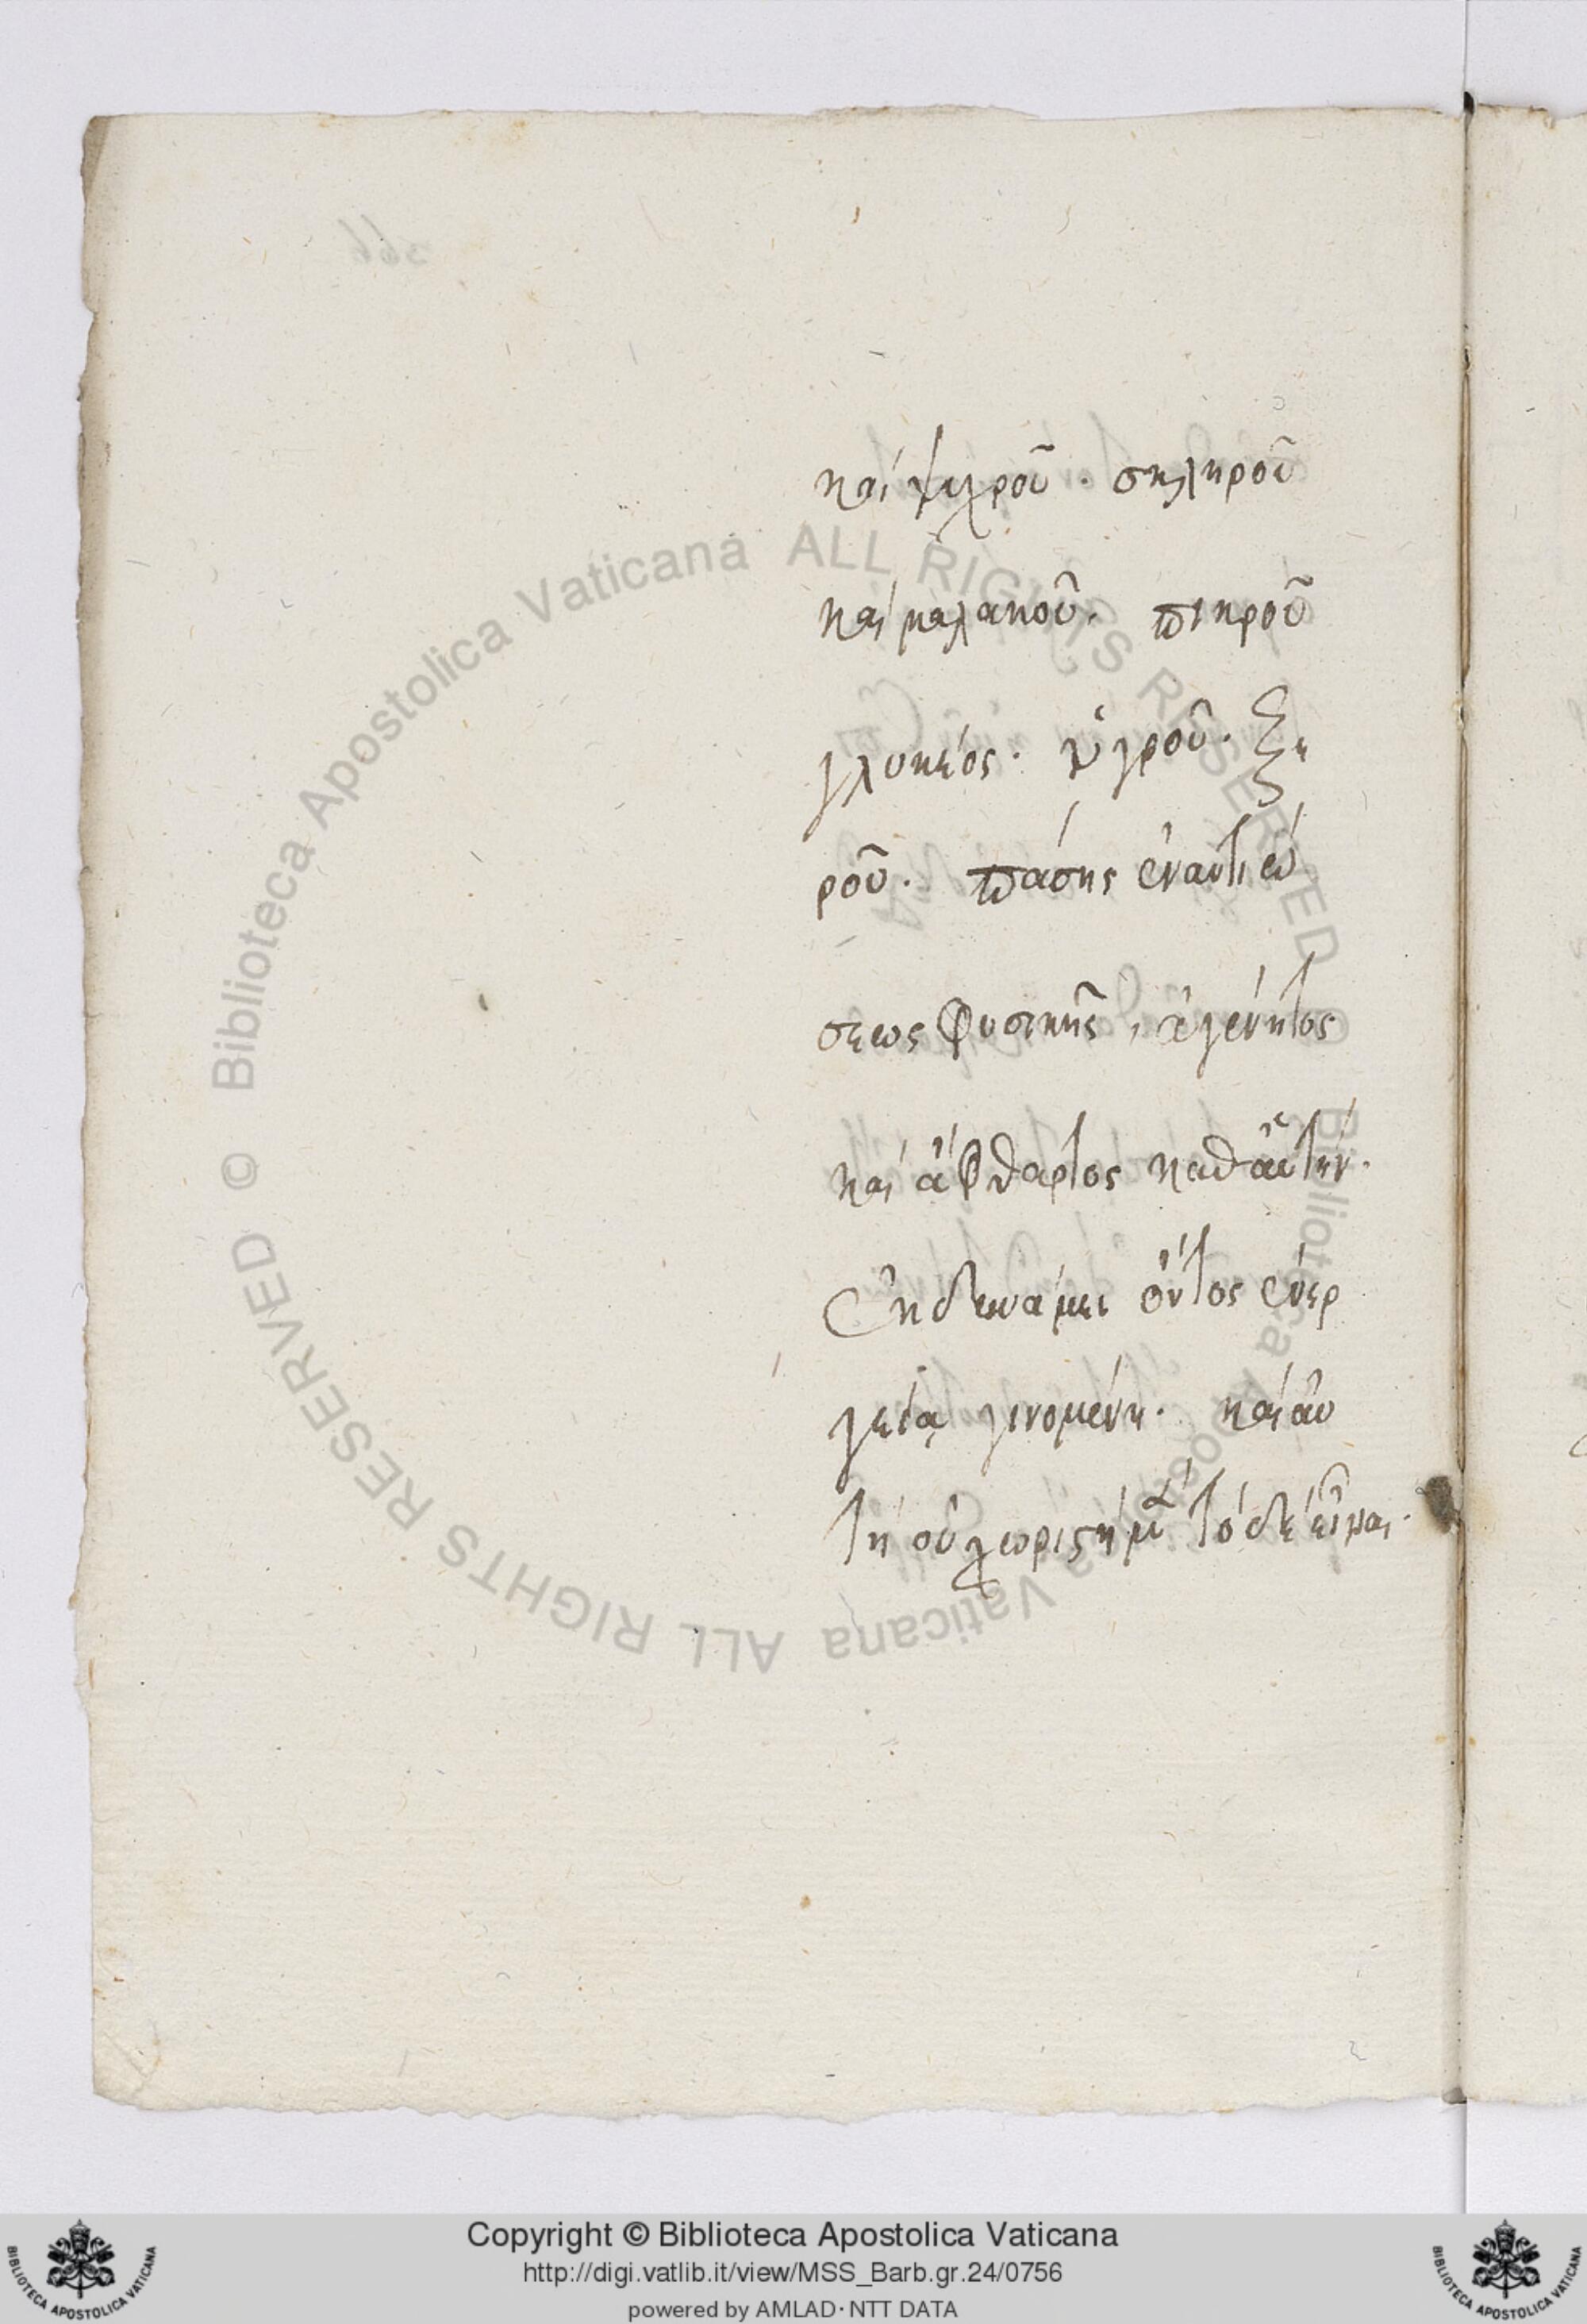 καὶ ψυχροῦ · σκληροῦ
καὶ μαλακοῦ · πικροῦ
γλυκέος · ὑγροῦ · ξη
ροῦ · πάσης ἐναντιώ
σεως φυσικῆς, ἀγένητος
καὶ ἄφθαρτος καθ' αὑτήν ·
ἐκ δυνάμει ὄντος ἐνερ
γείᾳ γινομένη · καὶ αὐ
τὴ οὐ χωριστὴ μὰ τόδε εἶναι ·
Biblioteca Apostolica Vaticana ALL RIGHTS RESERVED ©
Biblioteca Apostolica Vaticana ALL RIGHTS RESERVED ©
Copyright © Biblioteca Apostolica Vaticana
http://digi.vatlib.it/view/MSS_Barb.gr.24/0756
powered by AMLAD · NTT DATA
BIBLIOTECA APOSTOLICA VATICANA
BIBLIOTECA APOSTOLICA VATICANA